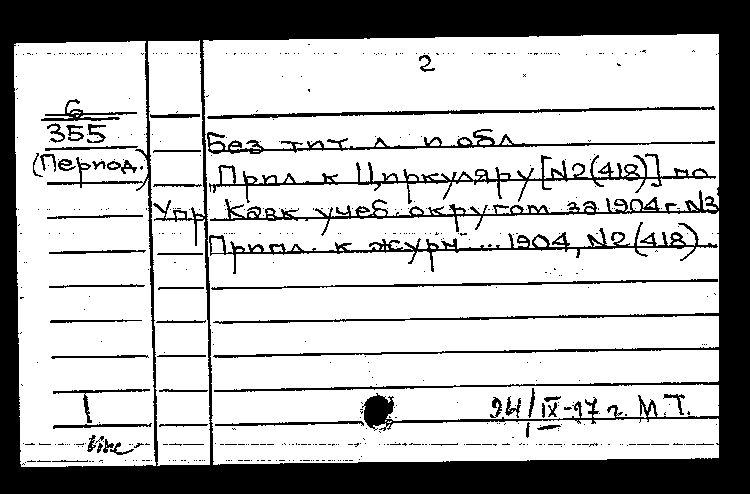 2
6
355
(Период.)
Без тит. л. и обл.
"Прил. к Циркуляру [N2(418)] по
Упр Кавк. учеб. округом за 1904 г. N3
Прил. к журн ... 1904, N2 (418).
1
24/IX-47 г. М.Т.